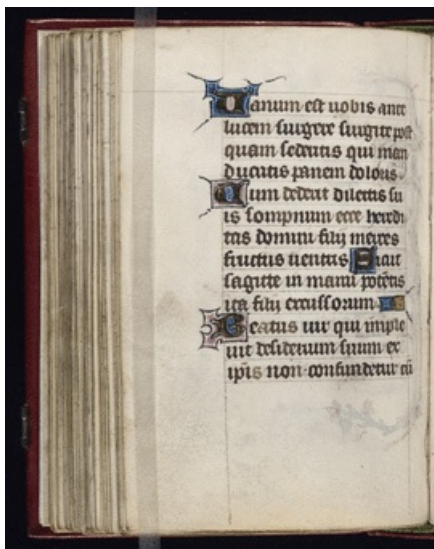 Vanum est uobis ante
lucem surgere surgite post
quam sederitis qui man
ducatis panem doloris
Cum dederit dilectis su
is sompnum ecce heredi
tas domini filij merces
fructus uentris Sicut
sagitte in manu potentis
ita filij excussorum
Beatus uir qui imple
uit desiderium suum ex
ipsis non confundetur cū